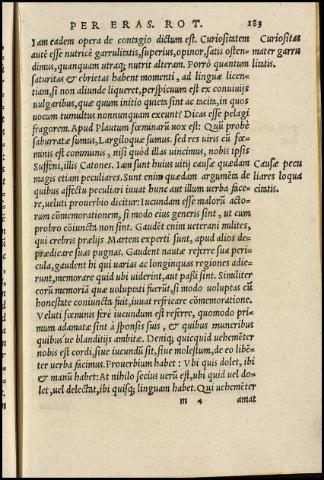 PER ERAS. ROT. 183
Iam eadem opera de contagio dictum est. Curiositatem
autē esse nutricē garrulitatis, superius, opinor, satis osten-
dimus, quanquam utraq; nutrit alteram. Porrò quantum
saturitas & ebrietas habent momenti, ad linguæ licen-
tiam, si non aliunde liqueret, perspicuum est ex conuiuijs
uulgaribus, quæ quum initio quieta sint ac tacita, in quos
uocum tumultus nonnunquam exeunt? Dicas esse pelagi
fragorem. Apud Plautum fœminarū uox est: Quū probè
saburratæ sumus, Largiloquæ sumus. sed res uiris cū fœ-
minis est communis, nisi quòd illas uincimus, nobis ipsis
Suffēni, illis Catones. Iam sunt huius uitij causæ quædam
magis etiam peculiares. Sunt enim quædam argumēta de
quibus affectu peculiari iuuat hunc aut illum uerba face-
re, ueluti prouerbio dicitur: Iucundam esse malorū acto-
rum cōmemorationem, si modo eius generis sint, ut cum
probro cōiuncta non sint. Gaudēt enim ueterani milites,
qui crebris prælijs Martem experti sunt, apud alios de-
prædicare suas pugnas. Gaudent nautæ referre sua peri-
cula, gaudent hi qui uarias ac longinquas regiones adie-
runt, memorare quid ubi uiderint, aut paßi sint. Similiter
eorū memoriā quæ uoluptati fuerūt, si modo uoluptas cū
honestate coniuncta fuit, iuuat refricare cōmemoratione.
Veluti fœminis ferè iucundum est referre, quomodo pri-
mum adamatæ sint à sponsis suis, & quibus muneribus
quibus ue blanditijs ambitæ. Deniq; quicquid uehemēter
nobis est cordi, siue iucundū sit, siue molestum, de eo libē-
ter uerba facimus. Prouerbium habet : Vbi quis dolet, ibi
& manū habet: At nihilo secius uerū est, ubi quid uel do-
let, uel delectat, ibi quisq; linguam habet. Qui uehemēter
m 4 amat
Curiositas
mater garru
litatis.
Causæ pecu
liares loqua
citatis.